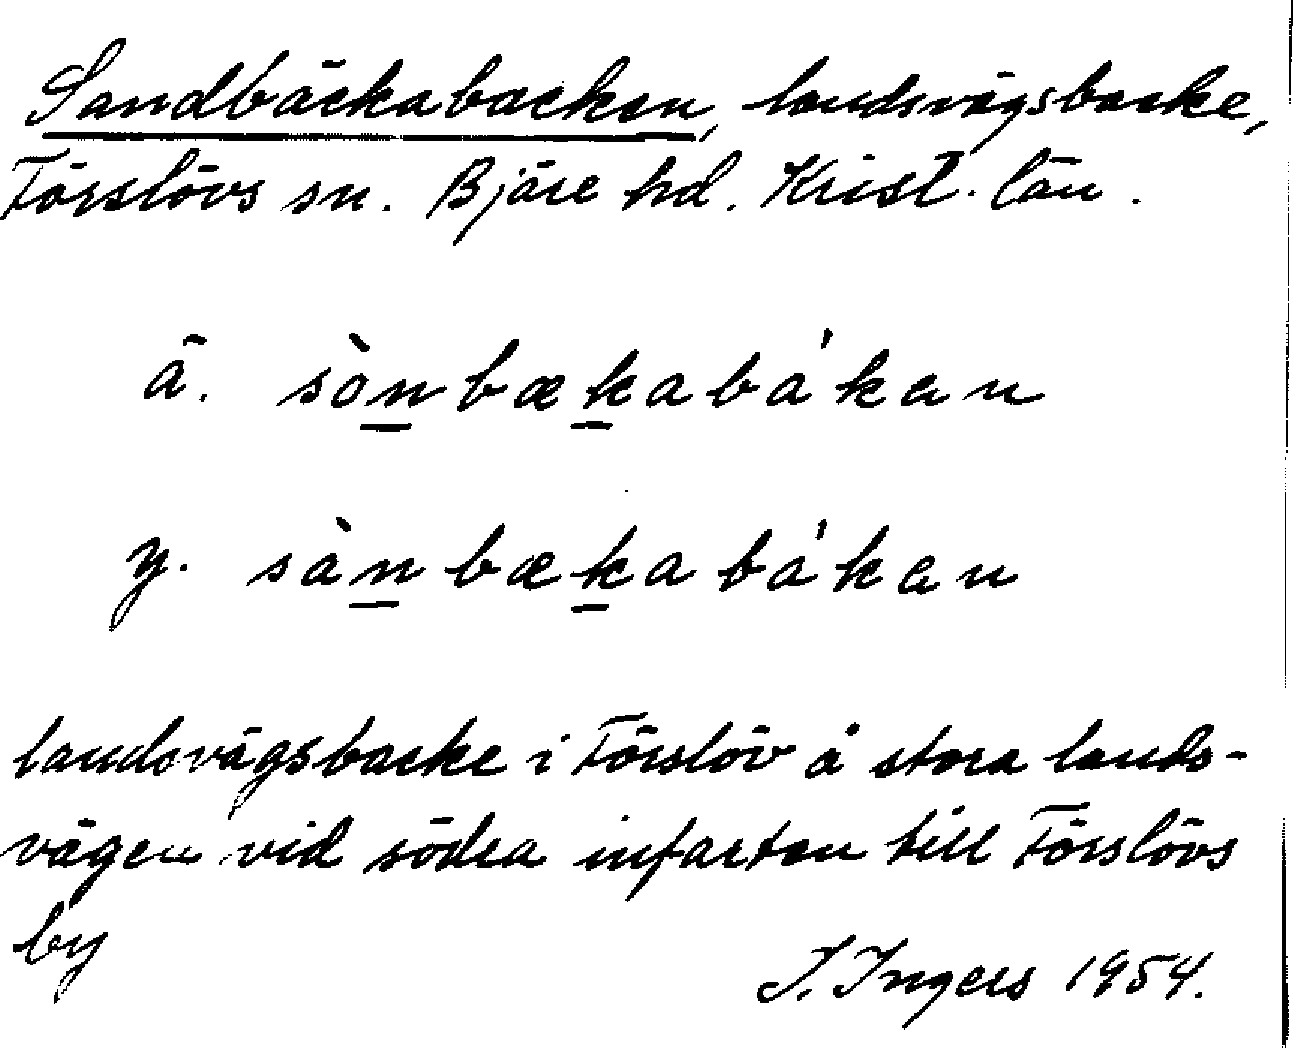 Sandbäckabacken, landsvägsbacke,
Förslövs sn. Bjäre hd. Krist. län.
ä. sònbækabákan
y. sànbækabákan
landsvägsbacke i Förslöv å stora lands-
vägen vid södra infarten till Förslövs
by
I. Ingers 1954.